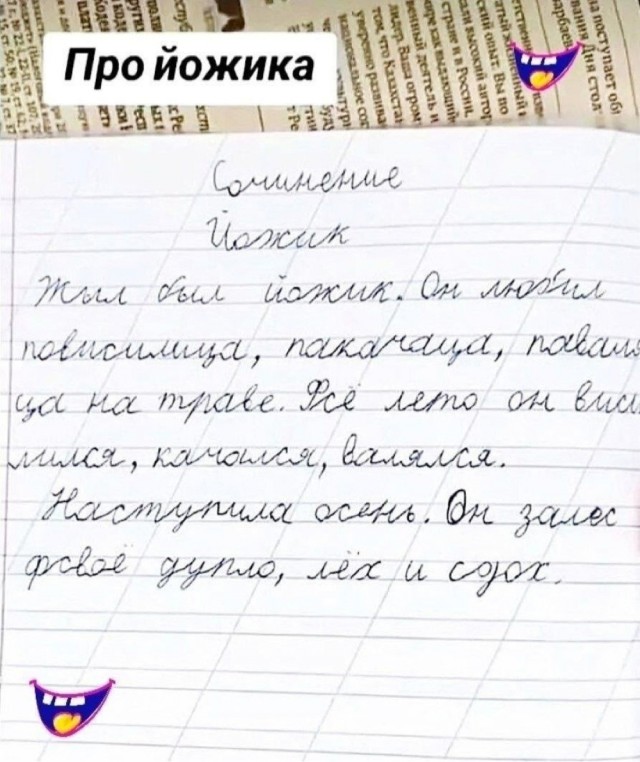 Про йожика
Сочинение
Йожик
Жыл был йожик. Он любил
повисилица, пакачаца, паваля
ца на траве. Фсё лето он висе
лился, качался, валялся.
Наступила осень. Он залес
фсваё дупло, лёх и сдох.